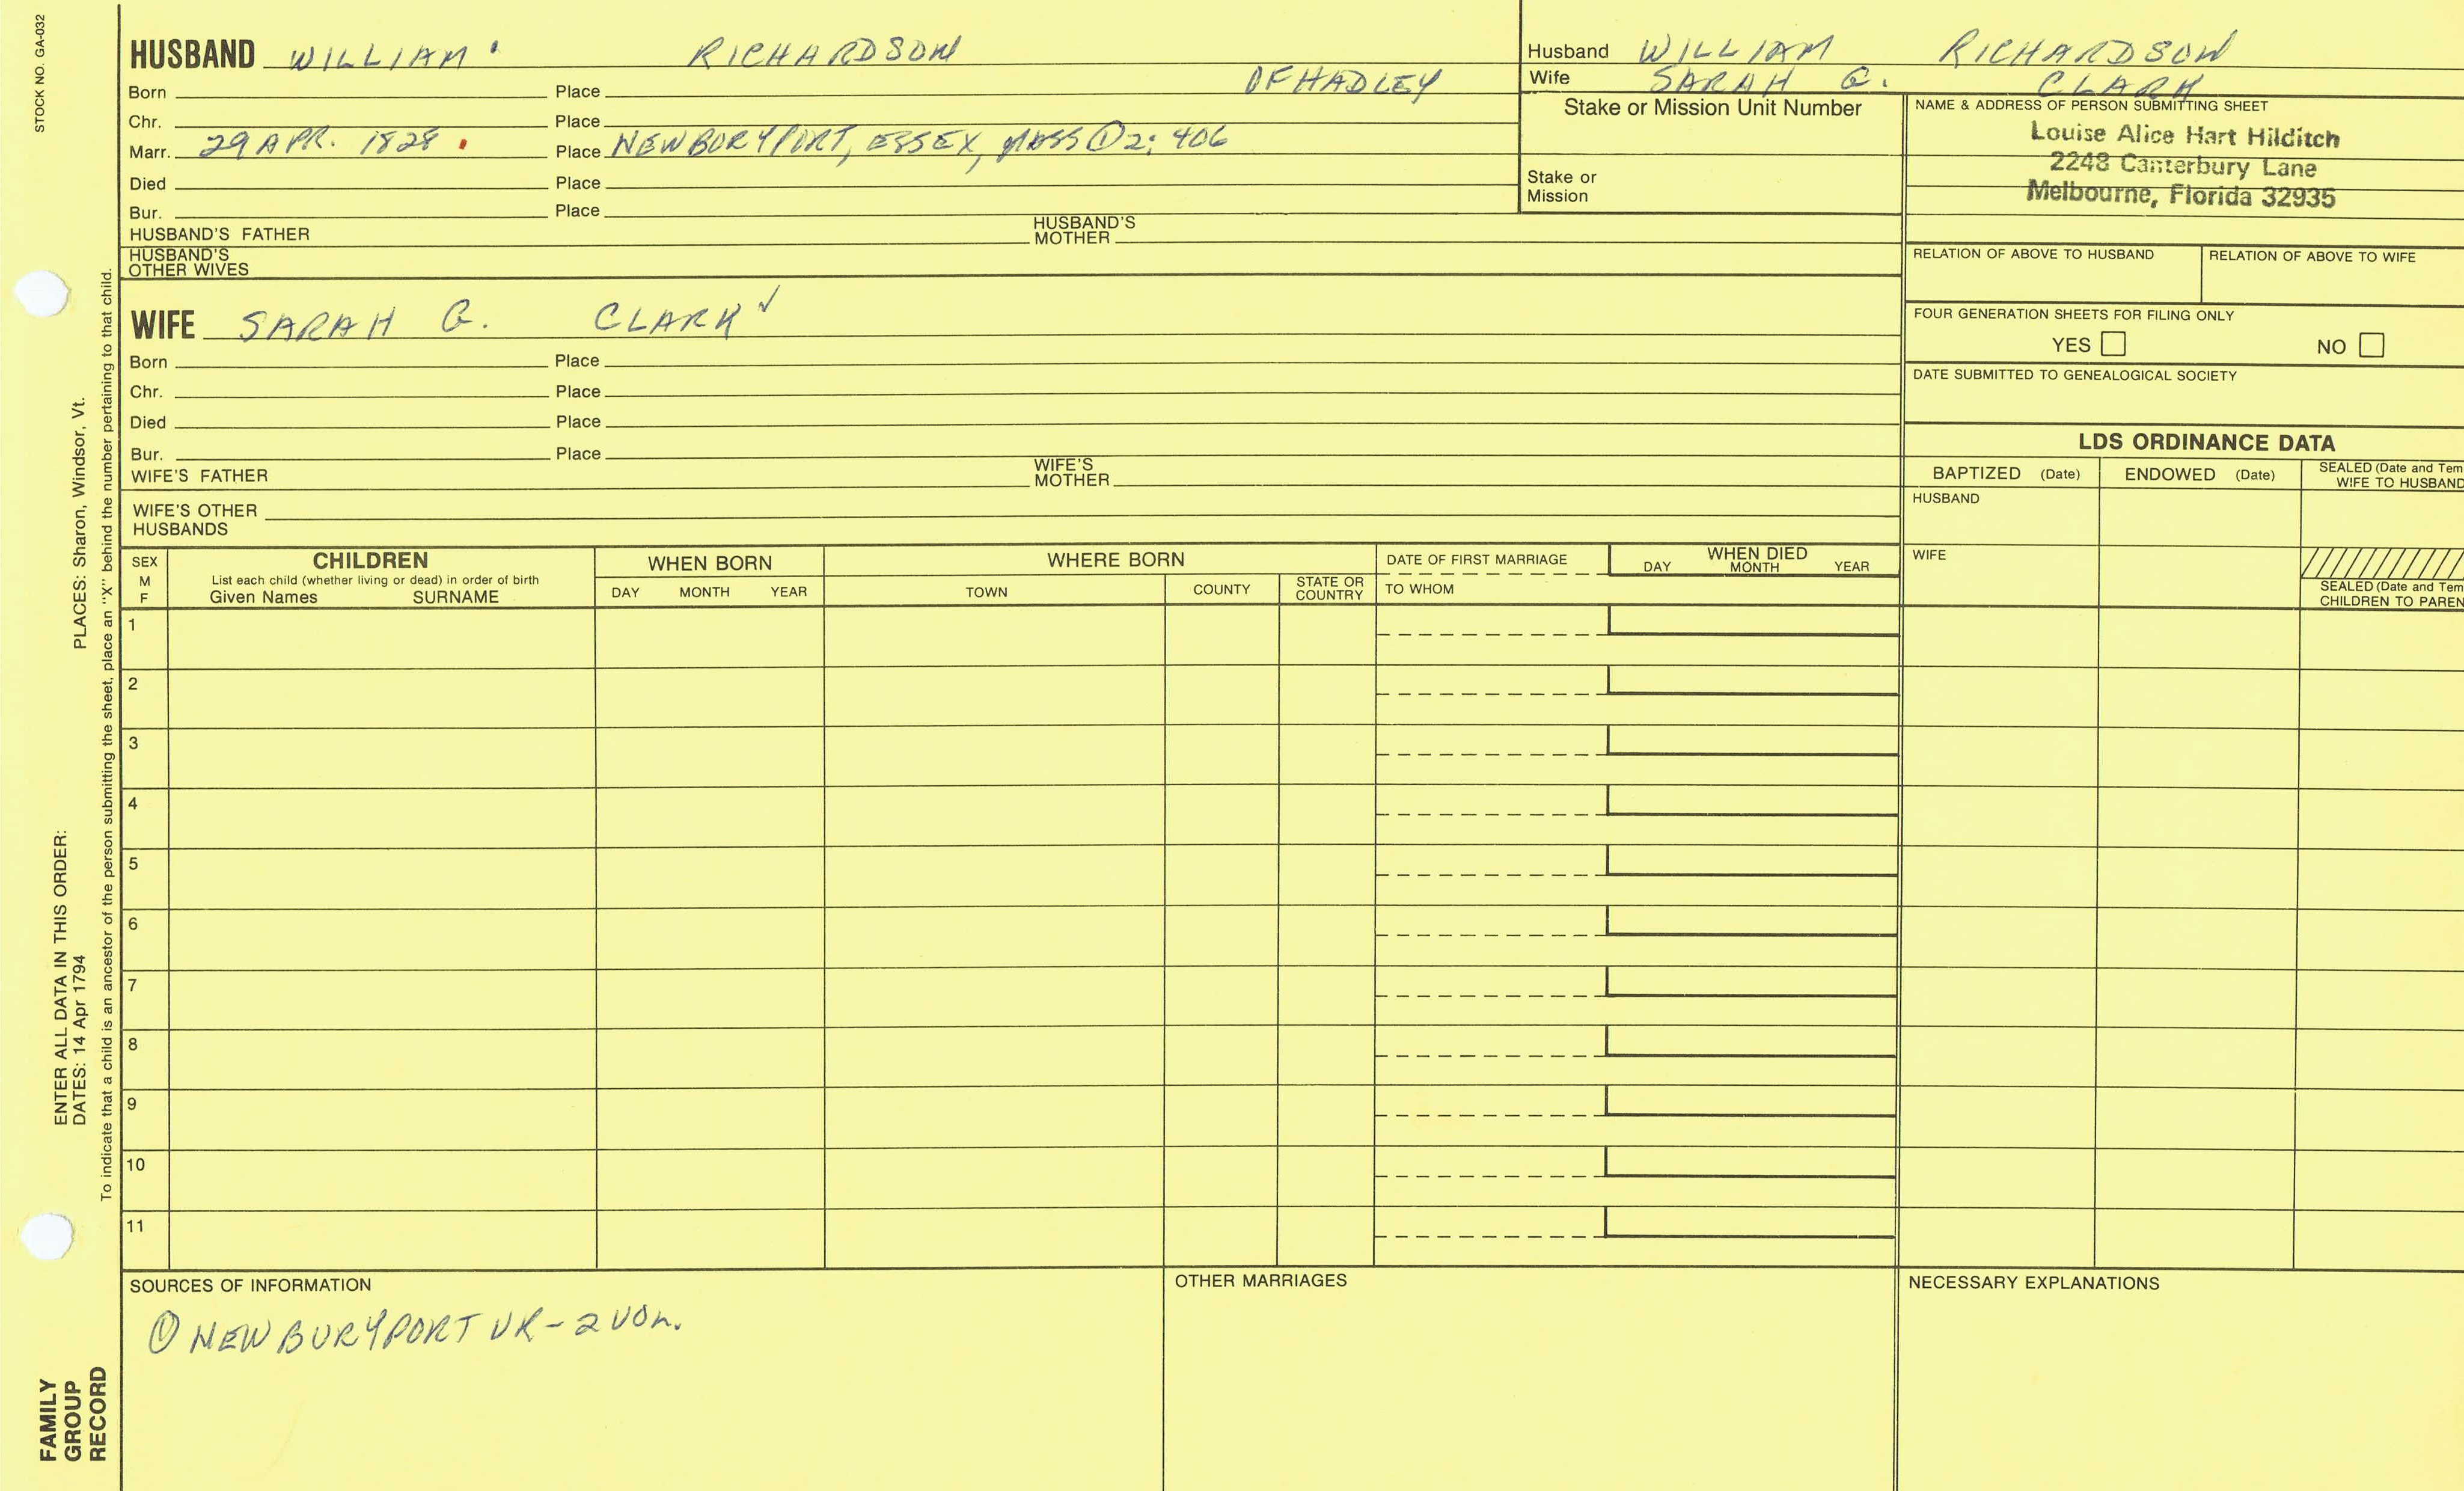 STOCK NO. GA-032
HUSBAND WILLIAM RICHARDSON
OF HADLEY
Born Place
Chr. Place
Marr. 29 APR. 1828 Place NEWBURYPORT, ESSEX, MASS ① 2: 406
Died Place
Bur. Place
HUSBAND'S FATHER HUSBAND'S MOTHER
HUSBAND'S OTHER WIVES
Husband WILLIAM RICHARDSON
Wife SARAH G. CLARK
Stake or Mission Unit Number
Stake or Mission
NAME & ADDRESS OF PERSON SUBMITTING SHEET
Louise Alice Hart Hilditch
2248 Canterbury Lane
Melbourne, Florida 32935
RELATION OF ABOVE TO HUSBAND RELATION OF ABOVE TO WIFE
FOUR GENERATION SHEETS FOR FILING ONLY
YES NO
DATE SUBMITTED TO GENEALOGICAL SOCIETY
WIFE SARAH G. CLARK ✓
Born Place
Chr. Place
Died Place
Bur. Place
WIFE'S FATHER WIFE'S MOTHER
WIFE'S OTHER HUSBANDS
LDS ORDINANCE DATA
BAPTIZED (Date) ENDOWED (Date) SEALED (Date and Tem
WIFE TO HUSBAND
HUSBAND
WIFE
SEALED (Date and Tem
CHILDREN TO PAREN
SEX
M
F
CHILDREN
List each child (whether living or dead) in order of birth
Given Names SURNAME
WHEN BORN
DAY MONTH YEAR
WHERE BORN
TOWN COUNTY STATE OR COUNTRY
DATE OF FIRST MARRIAGE
TO WHOM
WHEN DIED
DAY MONTH YEAR
1
2
3
4
5
6
7
8
9
10
11
SOURCES OF INFORMATION
① NEWBURYPORT VR - 2 VOL.
OTHER MARRIAGES
NECESSARY EXPLANATIONS
FAMILY
GROUP
RECORD
ENTER ALL DATA IN THIS ORDER:
DATES: 14 Apr 1794 PLACES: Sharon, Windsor, Vt.
To indicate that a child is an ancestor of the person submitting the sheet, place an "X" behind the number pertaining to that child.